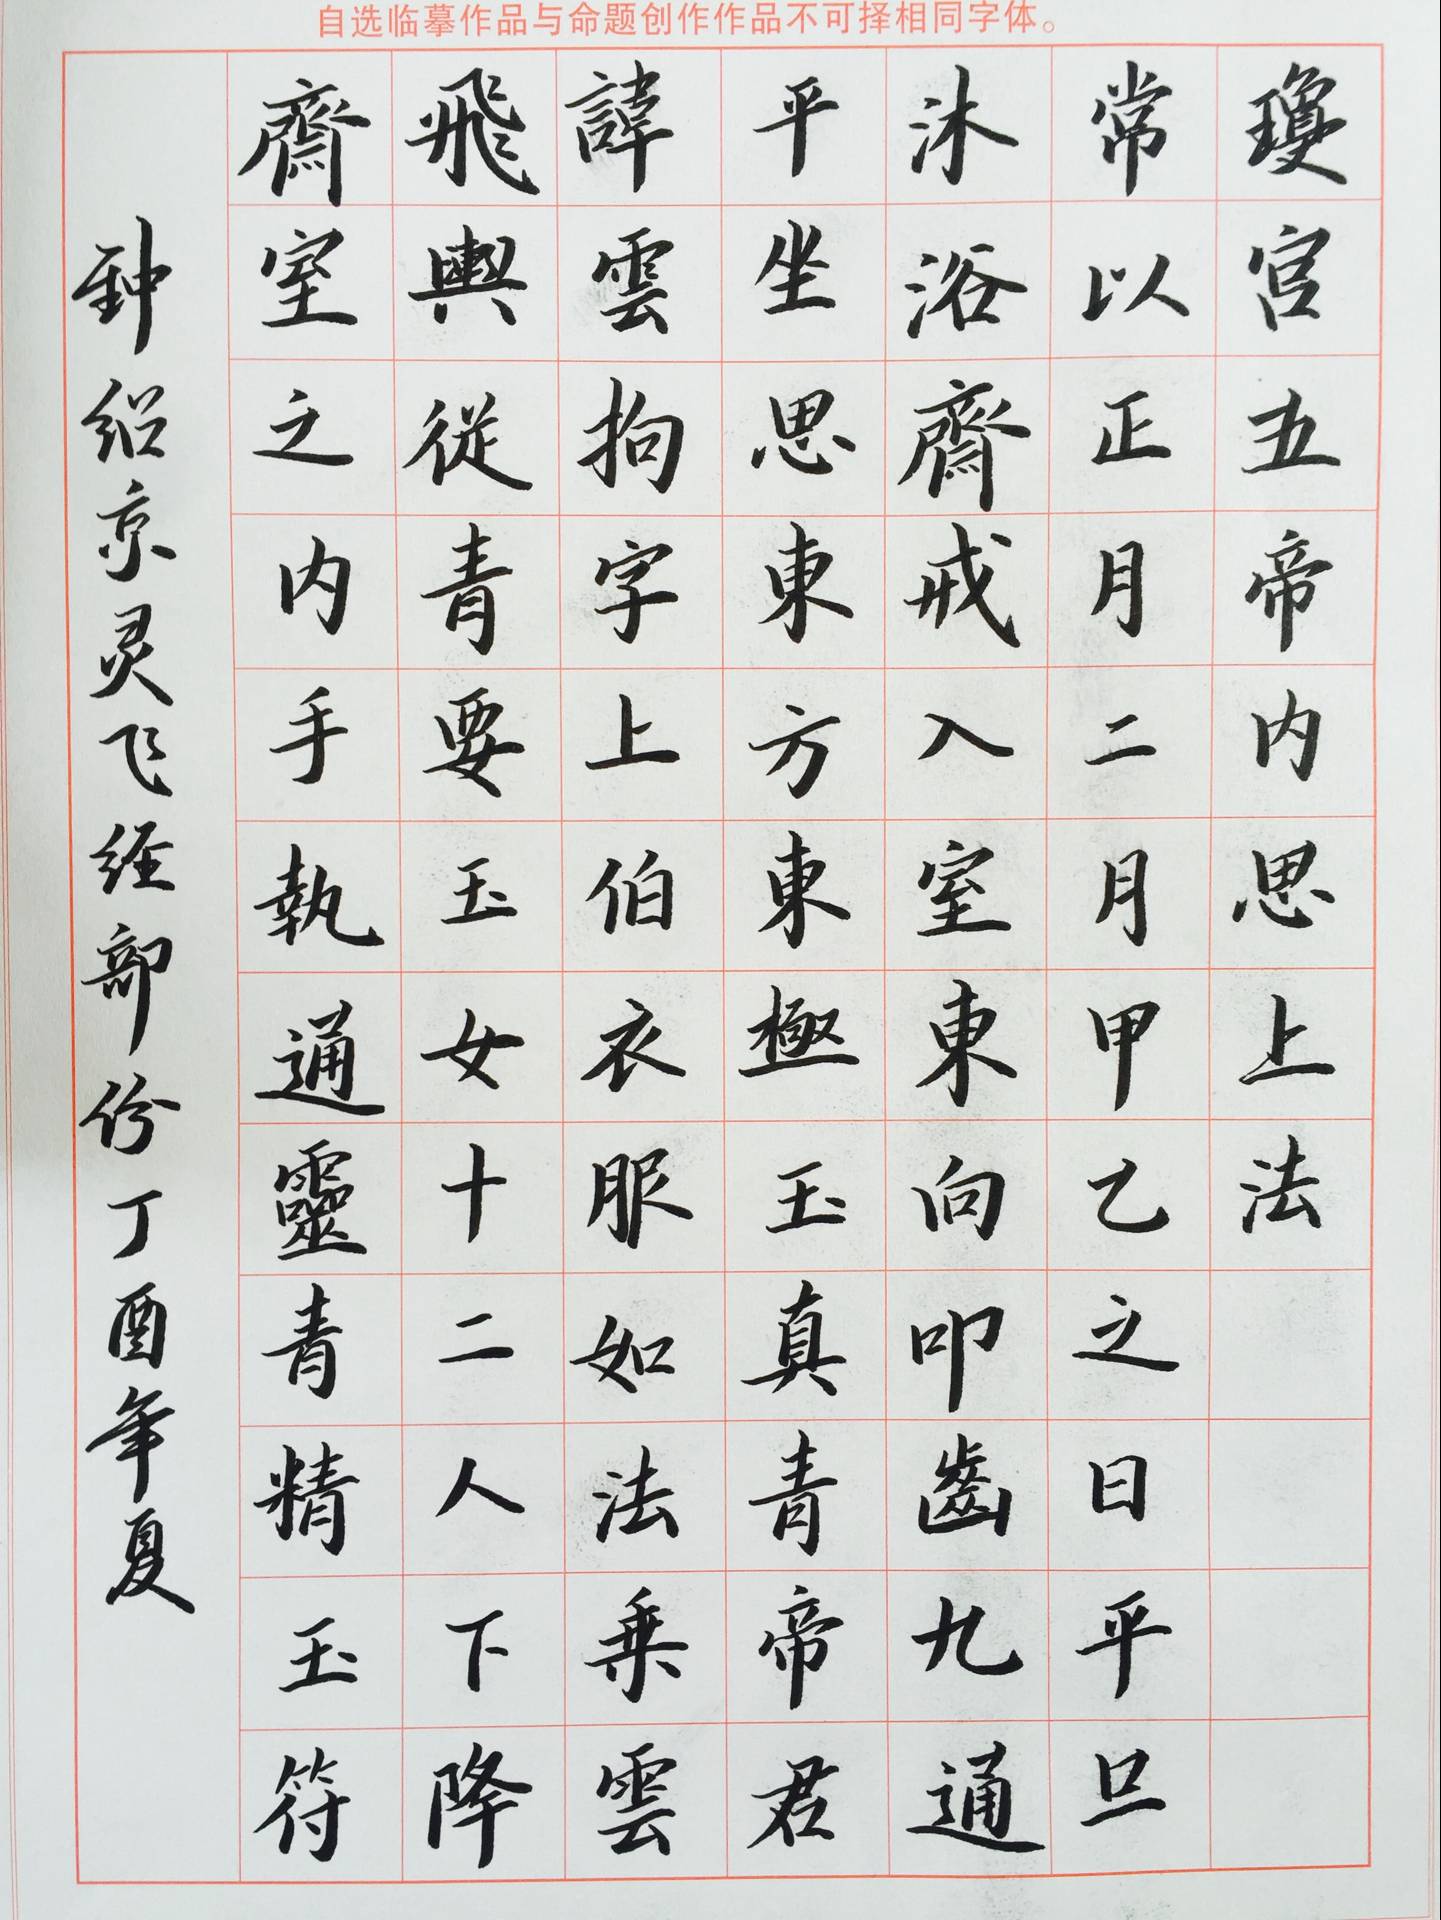 自选临摹作品与命题创作作品不可择相同字体。
瓊宫五帝内思上法
常以正月二月甲乙之日平旦
沐浴齋戒入室東向叩齒九通
平坐思東方東極玉真青帝君
諱雲拘字上伯衣服如法乗雲
飛輿從青要玉女十二人下降
齋室之内手執通靈青精玉符
钟绍京灵飞经部份丁酉年夏